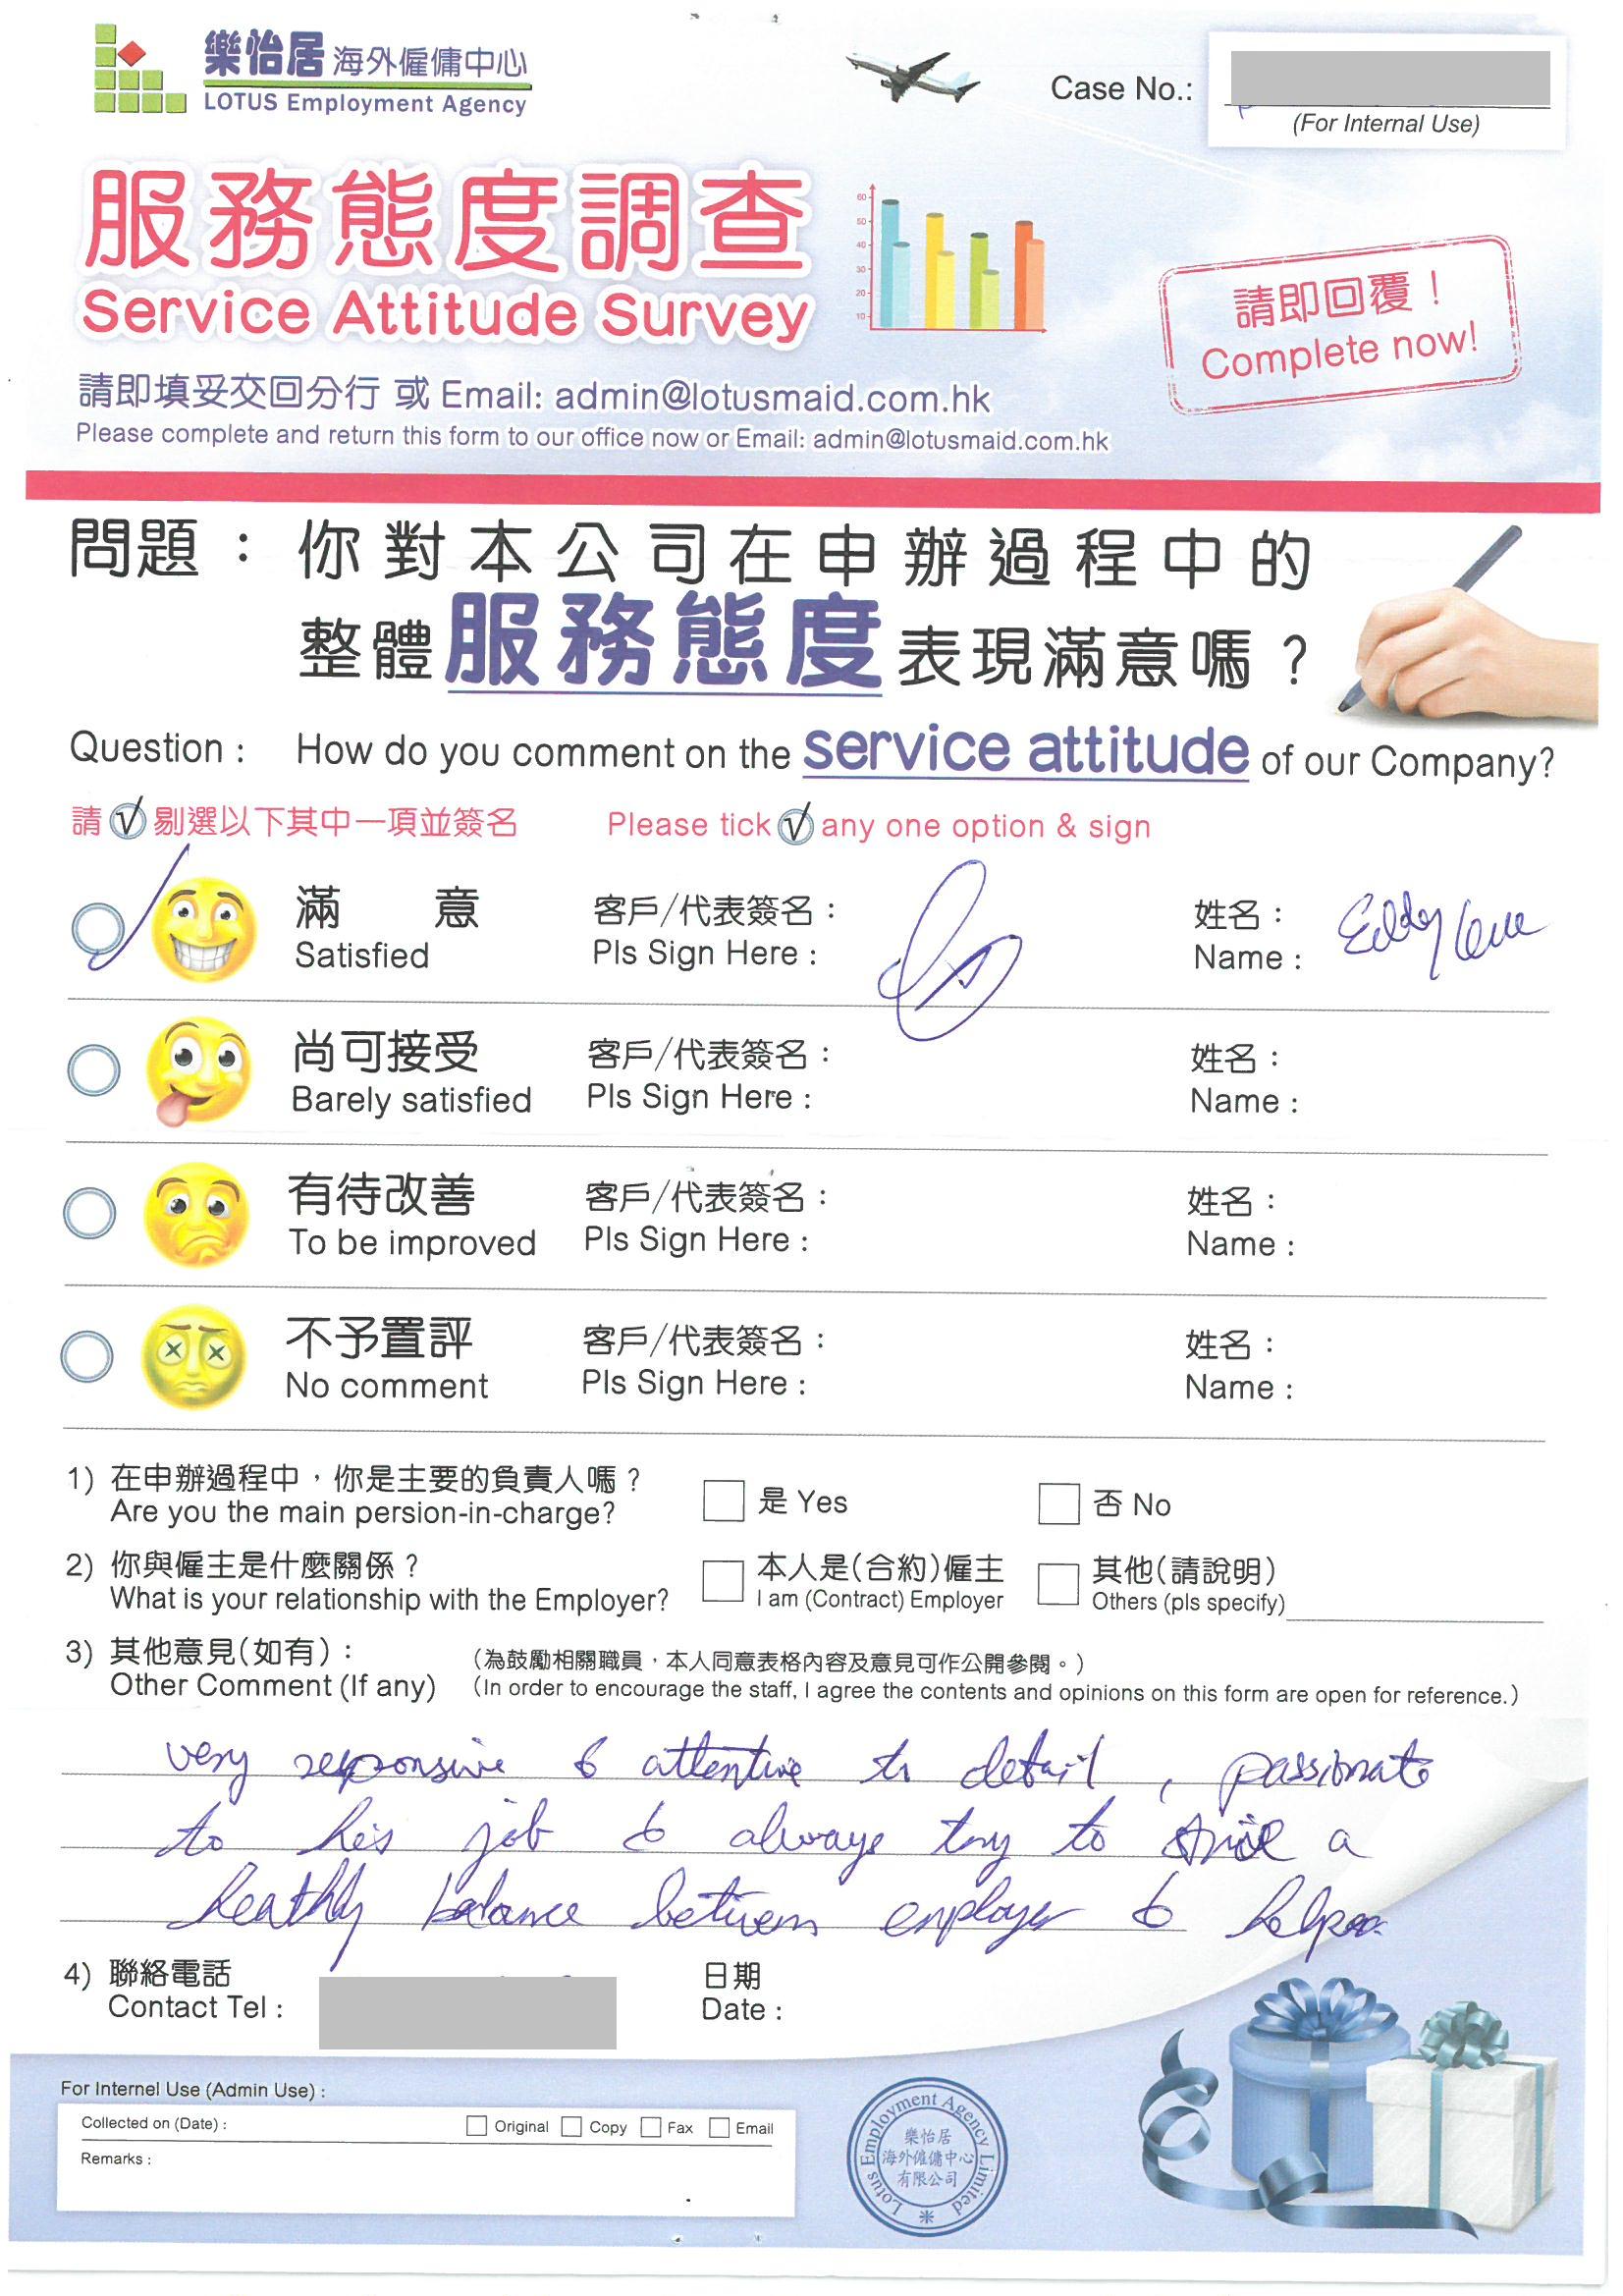 樂怡居 海外僱傭中心
LOTUS Employment Agency
Case No.:
(For Internal Use)
服務態度調查
Service Attitude Survey
60
50
40
30
20
10
請即回覆！
Complete now!
請即填妥交回分行 或 Email: admin@lotusmaid.com.hk
Please complete and return this form to our office now or Email: admin@lotusmaid.com.hk
問題： 你對本公司在申辦過程中的
整體服務態度表現滿意嗎？
Question : How do you comment on the service attitude of our Company?
請 √ 剔選以下其中一項並簽名 Please tick √ any one option & sign
滿 意 客戶/代表簽名： 姓名： Eddy
Satisfied Pls Sign Here : Name :
尚可接受 客戶/代表簽名： 姓名：
Barely satisfied Pls Sign Here : Name :
有待改善 客戶/代表簽名： 姓名：
To be improved Pls Sign Here : Name :
不予置評 客戶/代表簽名： 姓名：
No comment Pls Sign Here : Name :
1) 在申辦過程中，你是主要的負責人嗎？ 是 Yes 否 No
Are you the main persion-in-charge?
2) 你與僱主是什麼關係？ 本人是(合約)僱主 其他(請說明)
What is your relationship with the Employer? I am (Contract) Employer Others (pls specify)
3) 其他意見(如有)： (為鼓勵相關職員，本人同意表格內容及意見可作公開參閱。)
Other Comment (If any) (In order to encourage the staff, I agree the contents and opinions on this form are open for reference.)
very responsive & attentive to detail, passionate
to his job & always try to a
heathly balance between employer & helper
4) 聯絡電話 日期
Contact Tel : Date :
For Internel Use (Admin Use) :
Collected on (Date) : Original Copy Fax Email
Remarks :
Lotus Employment Agency Limited
樂怡居
海外僱傭中心
有限公司